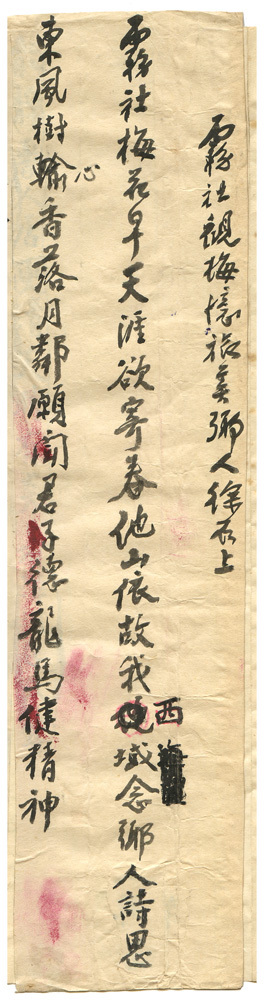 霧社觀梅憶旅美鄉人徐石上
霧社梅花早天涯欲寄春他山依故我域念鄉人詩思
西
東風樹輸香落月鄰願聞君子德龍馬健精神
心